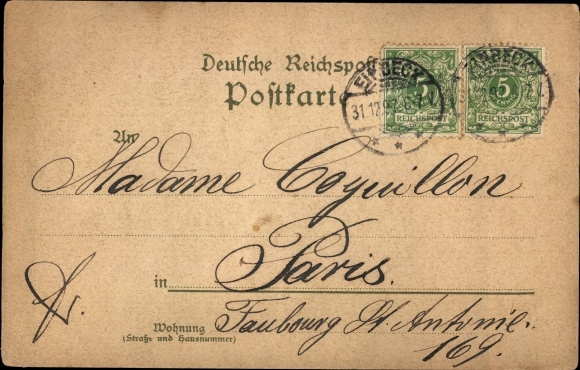 Deutsche Reichspost
Postkarte
EINBECK
31.12.97
5
REICHSPOST
EINBECK
5
REICHSPOST
An
Madame Coquillon
in Paris.
Wohnung Faubourg St. Antoine.
(Straße und Hausnummer)
169.